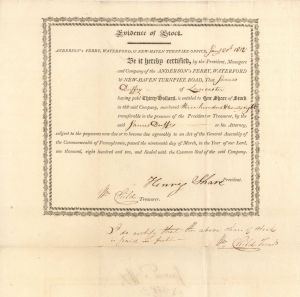 Evidence of Stock.
ANDERSON'S FERRY, WATERFORD & NEW-HAVEN TURNPIKE OFFICE, 1812
Be it hereby certified, by the President, Managers
and Company of the ANDERSON'S FERRY, WATERFORD
& NEW-HAVEN TURNPIKE ROAD, That James
Duffey of Lancaster
having paid Thirty Dollars, is entitled to One Share of Stock
in said company, numbered three hundred
transferable in the presence of the President or Treasurer, by the
said James Duffey or his Attorney,
subject to the payments now due or to become due agreeably to an Act of the General Assembly of
the Commonwealth of Pennsylvania, passed the nineteenth day of March, in the Year of our Lord
one thousand, eight hundred and ten, and Sealed with the Common Seal of the said Company.
Henry Share President.
Wm Child Treasurer.
I do certify that the above share of Stock
is paid in full
Wm Child